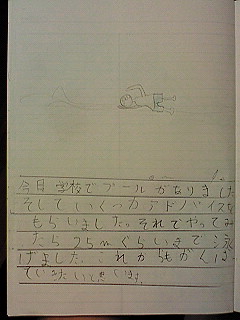 今日学校でプールがありました
そしていくつかアドバイスを
もらいました。それでやってみ
たら25mぐらいまで泳
げました。これからもがんば
っていきたいと思います。